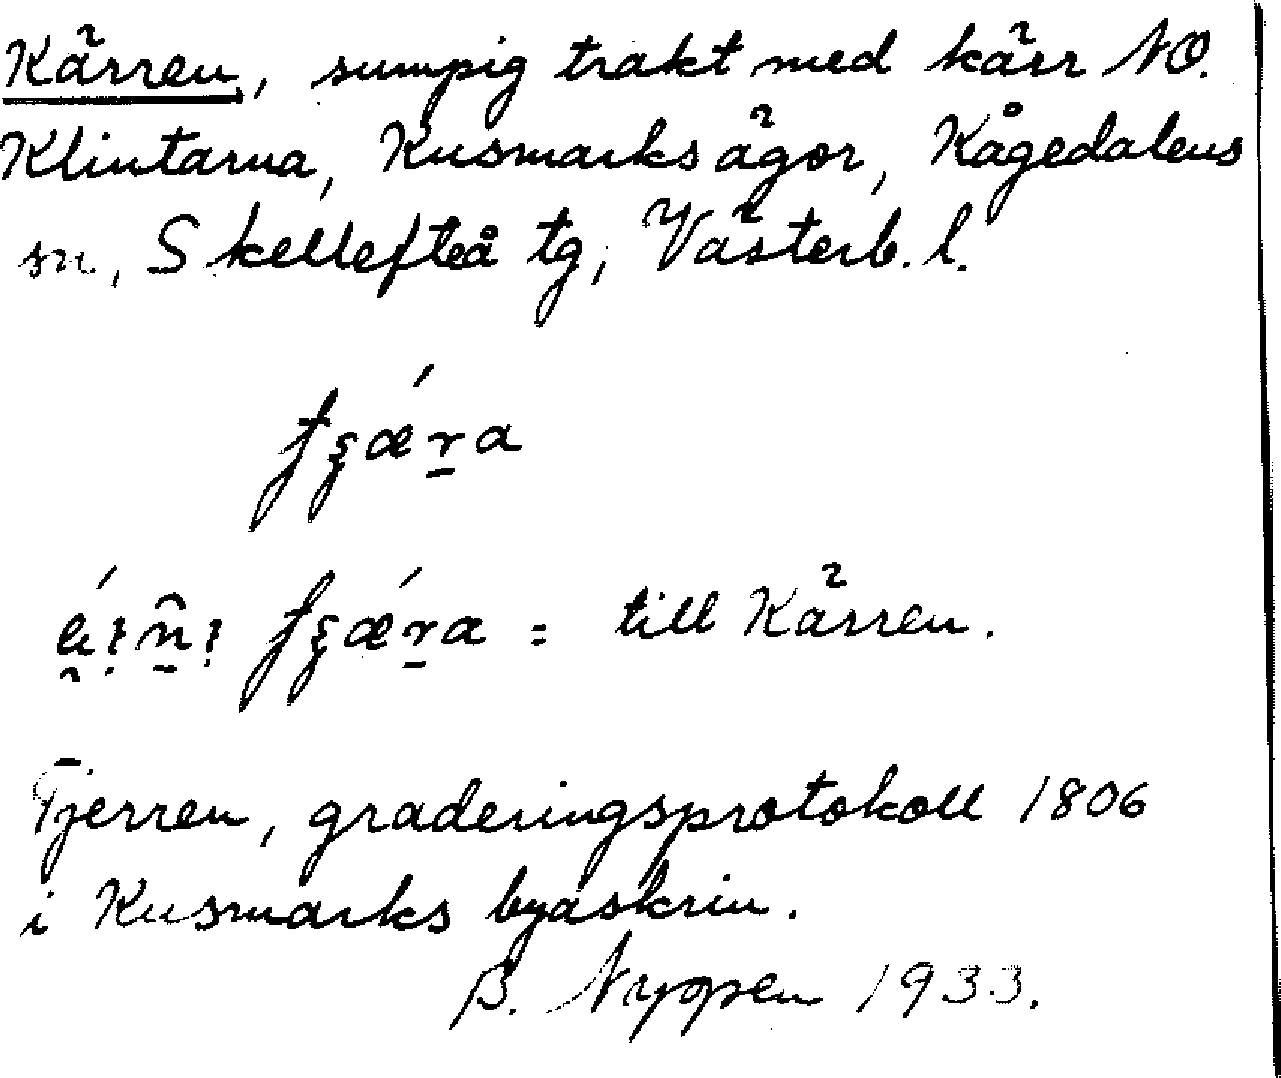 Kärren, sumpig trakt med kärr NO.
Klintarna, Kusmarks ägor, Kågedalens
sn, Skellefteå tg, Västerb. l.
= till Kärren.
Tjerren, graderingsprotokoll 1806
i Kusmarks byaskrin.
B. 1933.